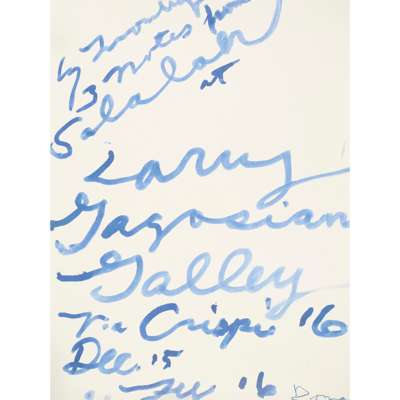 Cy Twombly
3 Notes from
Salalah at
Larry
Gagosian
Galley
Via Crispi '16
Dec. '15
'16